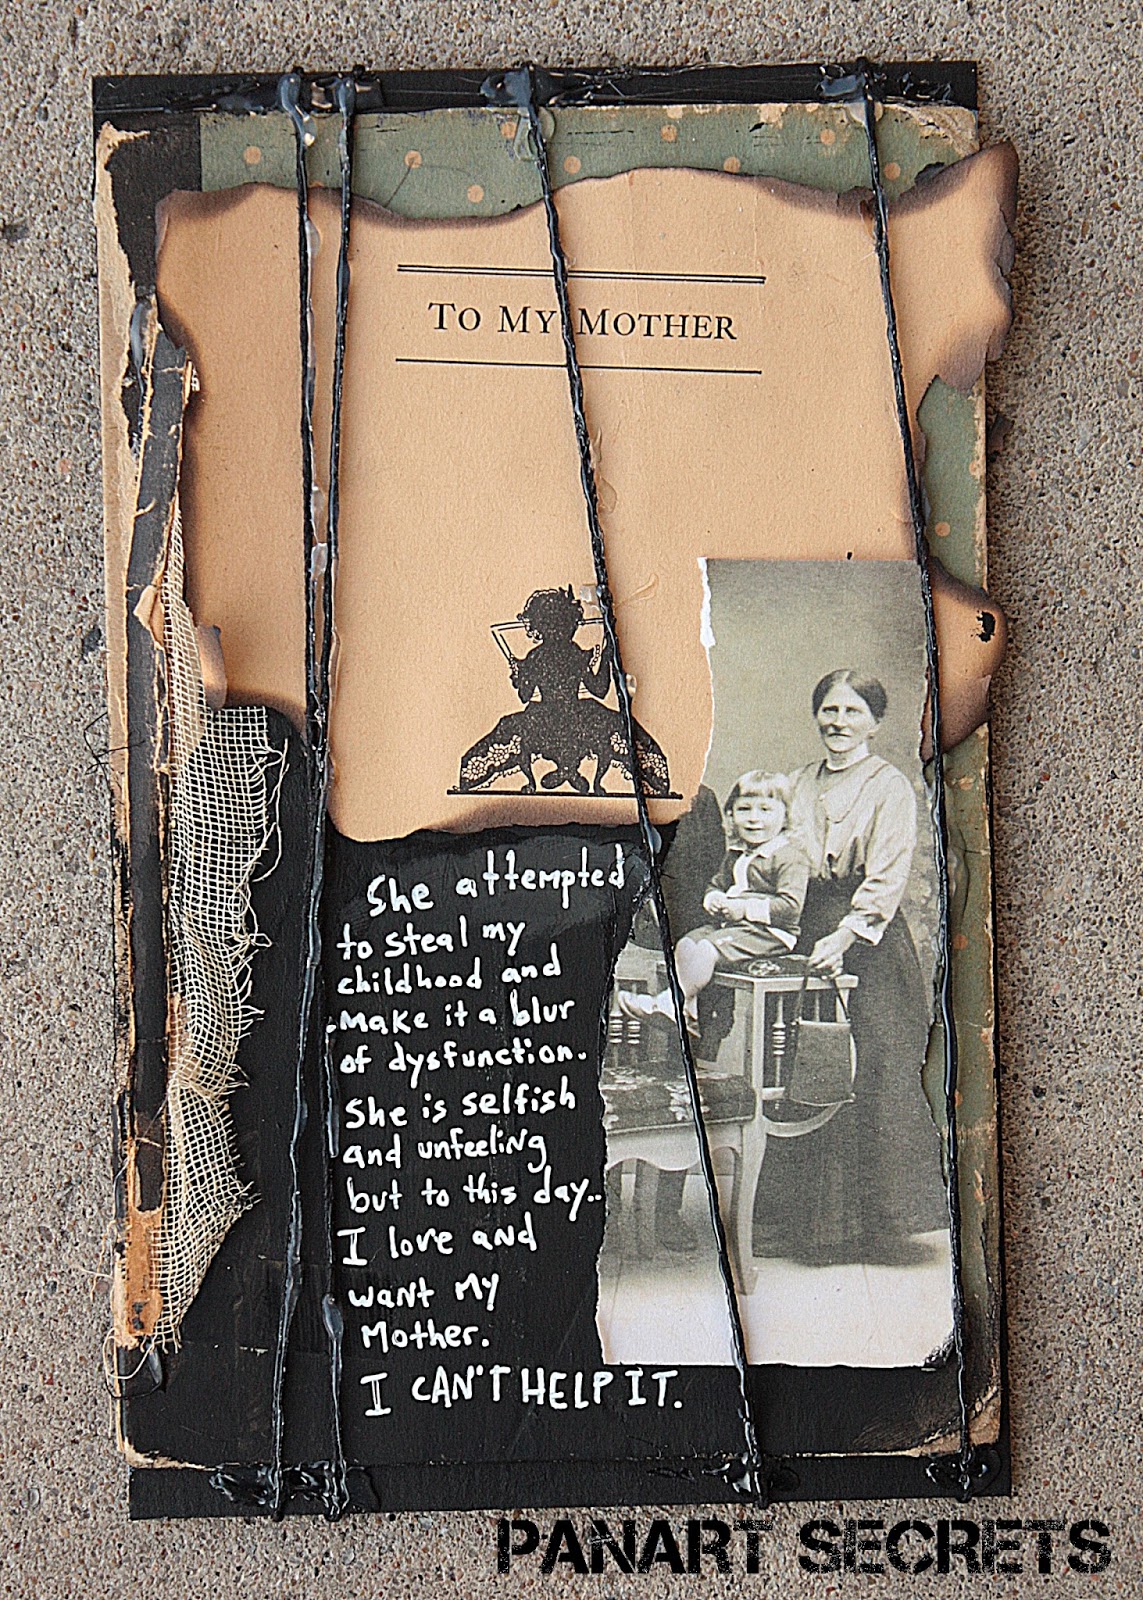 To My Mother
She attempted
to steal my
childhood and
make it a blur
of dysfunction.
She is selfish
and unfeeling
but to this day..
I love and
want my
Mother.
I CAN'T HELP IT.
PANART SECRETS